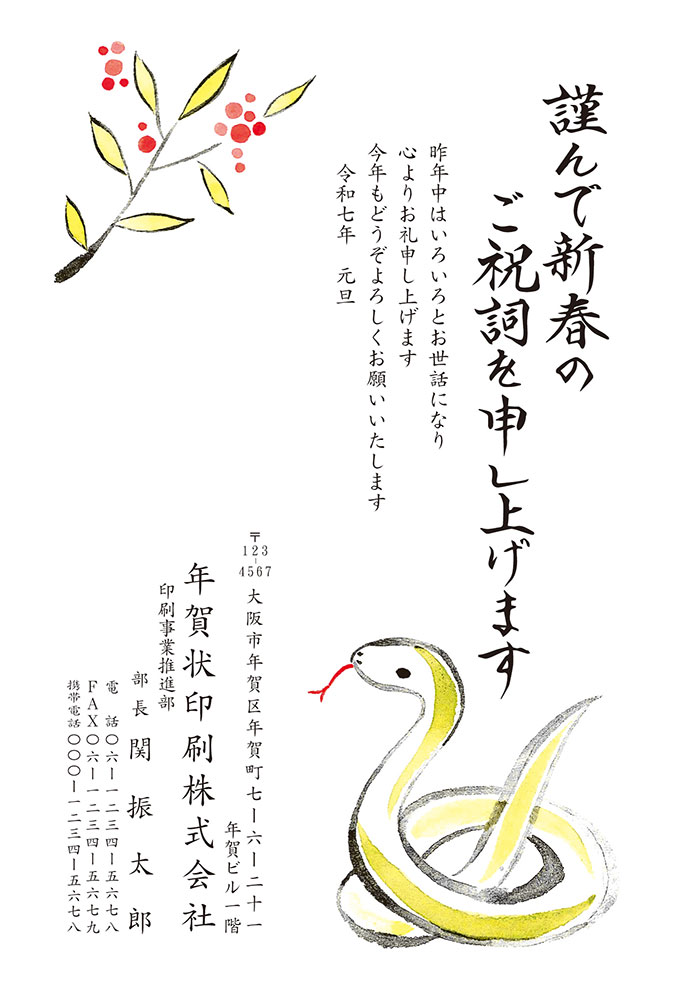 謹んで新春の
ご祝詞を申し上げます
昨年中はいろいろとお世話になり
心よりお礼申し上げます
今年もどうぞよろしくお願いいたします
令和七年　元旦
〒123-4567
大阪市年賀区年賀町七ー六ー二十一
年賀ビル一階
年賀状印刷株式会社
印刷事業推進部
部長 関振太郎
電話〇六ー一二三四ー五六七八
ＦＡＸ〇六ー一二三四ー五六七九
携帯電話〇〇〇ー一二三四ー五六七八